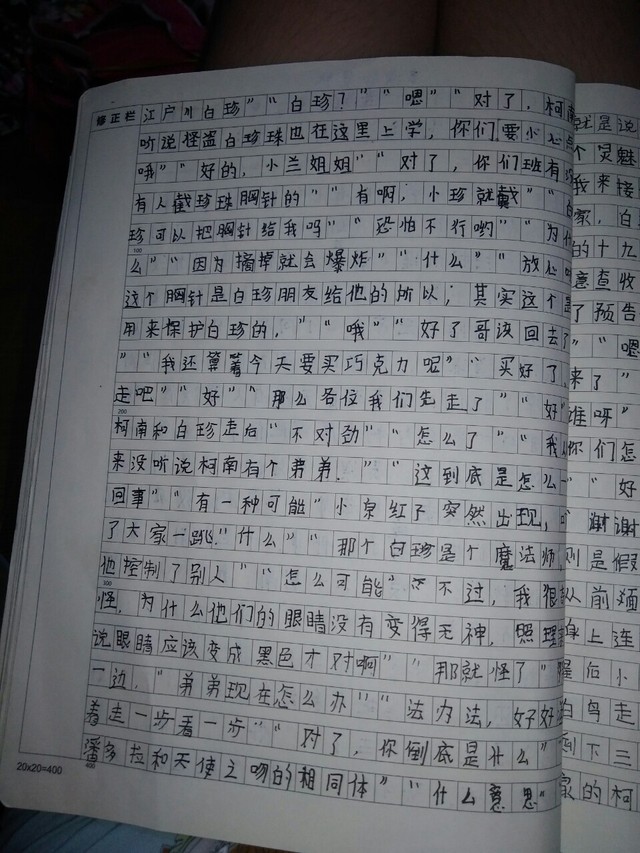 修正栏
江户川白珍”“白珍？”“嗯”“对了，柯南
听说怪盗白珍珠也在这里上学，你们要小心点
哦”“好的，小兰姐姐”“对了，你们班有
有人戴珍珠胸针的”“有啊，小珍就戴”“白
珍可以把胸针给我吗”“恐怕不行哟”“为什
么”“因为摘掉就会爆炸”“什么”“放心
这个胸针是白珍朋友给他的所以；其实这个是
用来保护白珍的，”“哦”“好了哥该回去了
”“我还算着今天要买巧克力呢”“买好了
走吧”“好”“那么各位我们先走了”“好”
柯南和白珍走后“不对劲”“怎么了”“我从
来没听说柯南有个弟弟．”“这到底是怎么一
回事”“有一种可能”小泉红子突然出现，吓
了大家一跳“什么”“那个白珍是个魔法师，
他控制了别人”“怎么可能”“不过，我很
怪，为什么他们的眼睛没有变得无神，照理
说眼睛应该变成黑色才对啊”“那就怪了”
一边，“弟弟现在怎么办”“法办法，好好
着走一步看一步”“对了，你倒底是什么”
潘多拉和天使之吻的相同体”“什么意思”
100
200
300
400
20x20=400
就是说
个灵魅
我来接
家，白
的十九
意查收
了预告
”“嗯
来了”
谁呀”
你们怎
”“好
谢谢
则是假
从前
身上连
后小
白鸟走
倒下三
家的柯